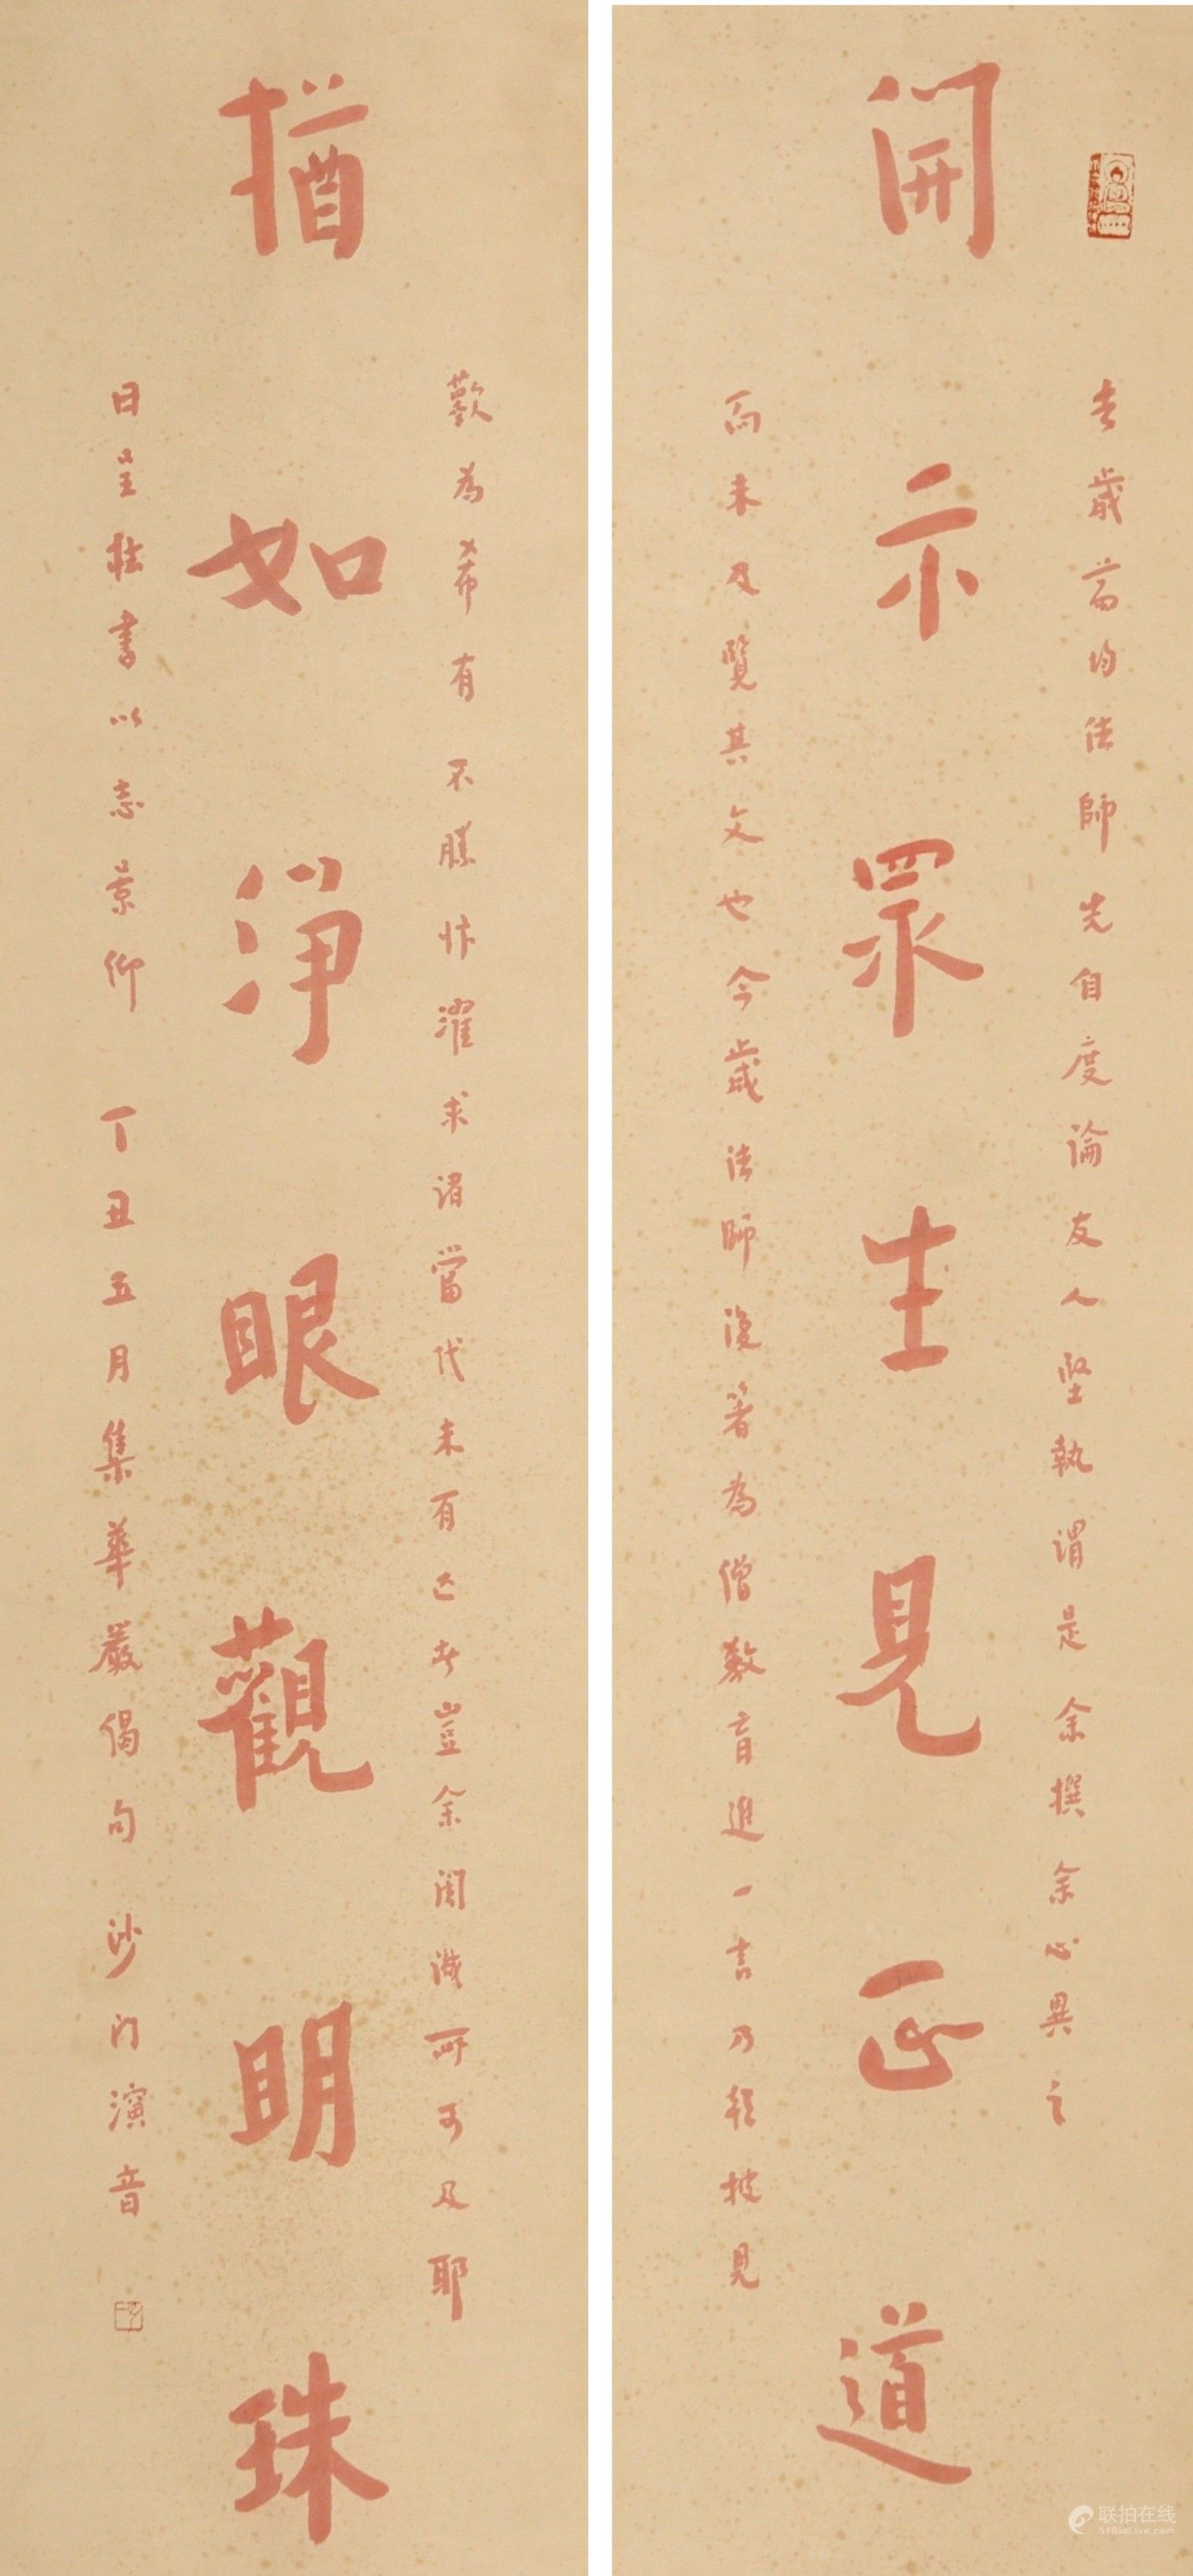 開示眾生見正道
去歲萬均法師先自度論友人堅執謂是余撰余心異之
而未及覽其文也今歲法師復著為僧教育進一言乃獲披見
猶如淨眼觀明珠
歎為希有不勝忭躍求諸當代未有匹者豈余闇識所可及耶
日呈拙書以志景仰 丁丑五月集華嚴偈句沙門演音
联拍在线
51BidLive.com